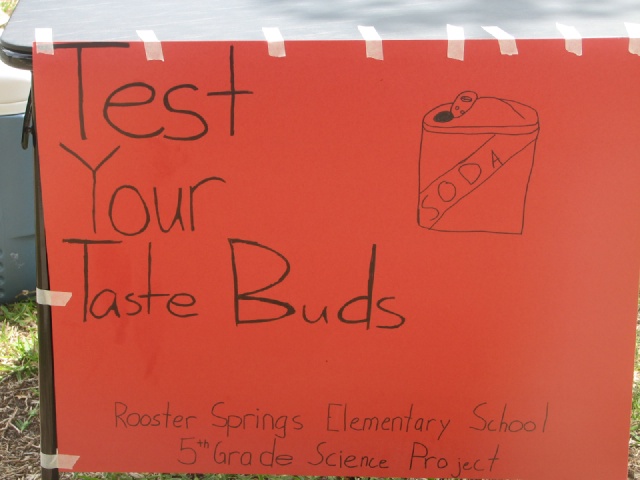 Test
Your
Taste Buds
SODA
Rooster Springs Elementary School
5th Grade Science Project